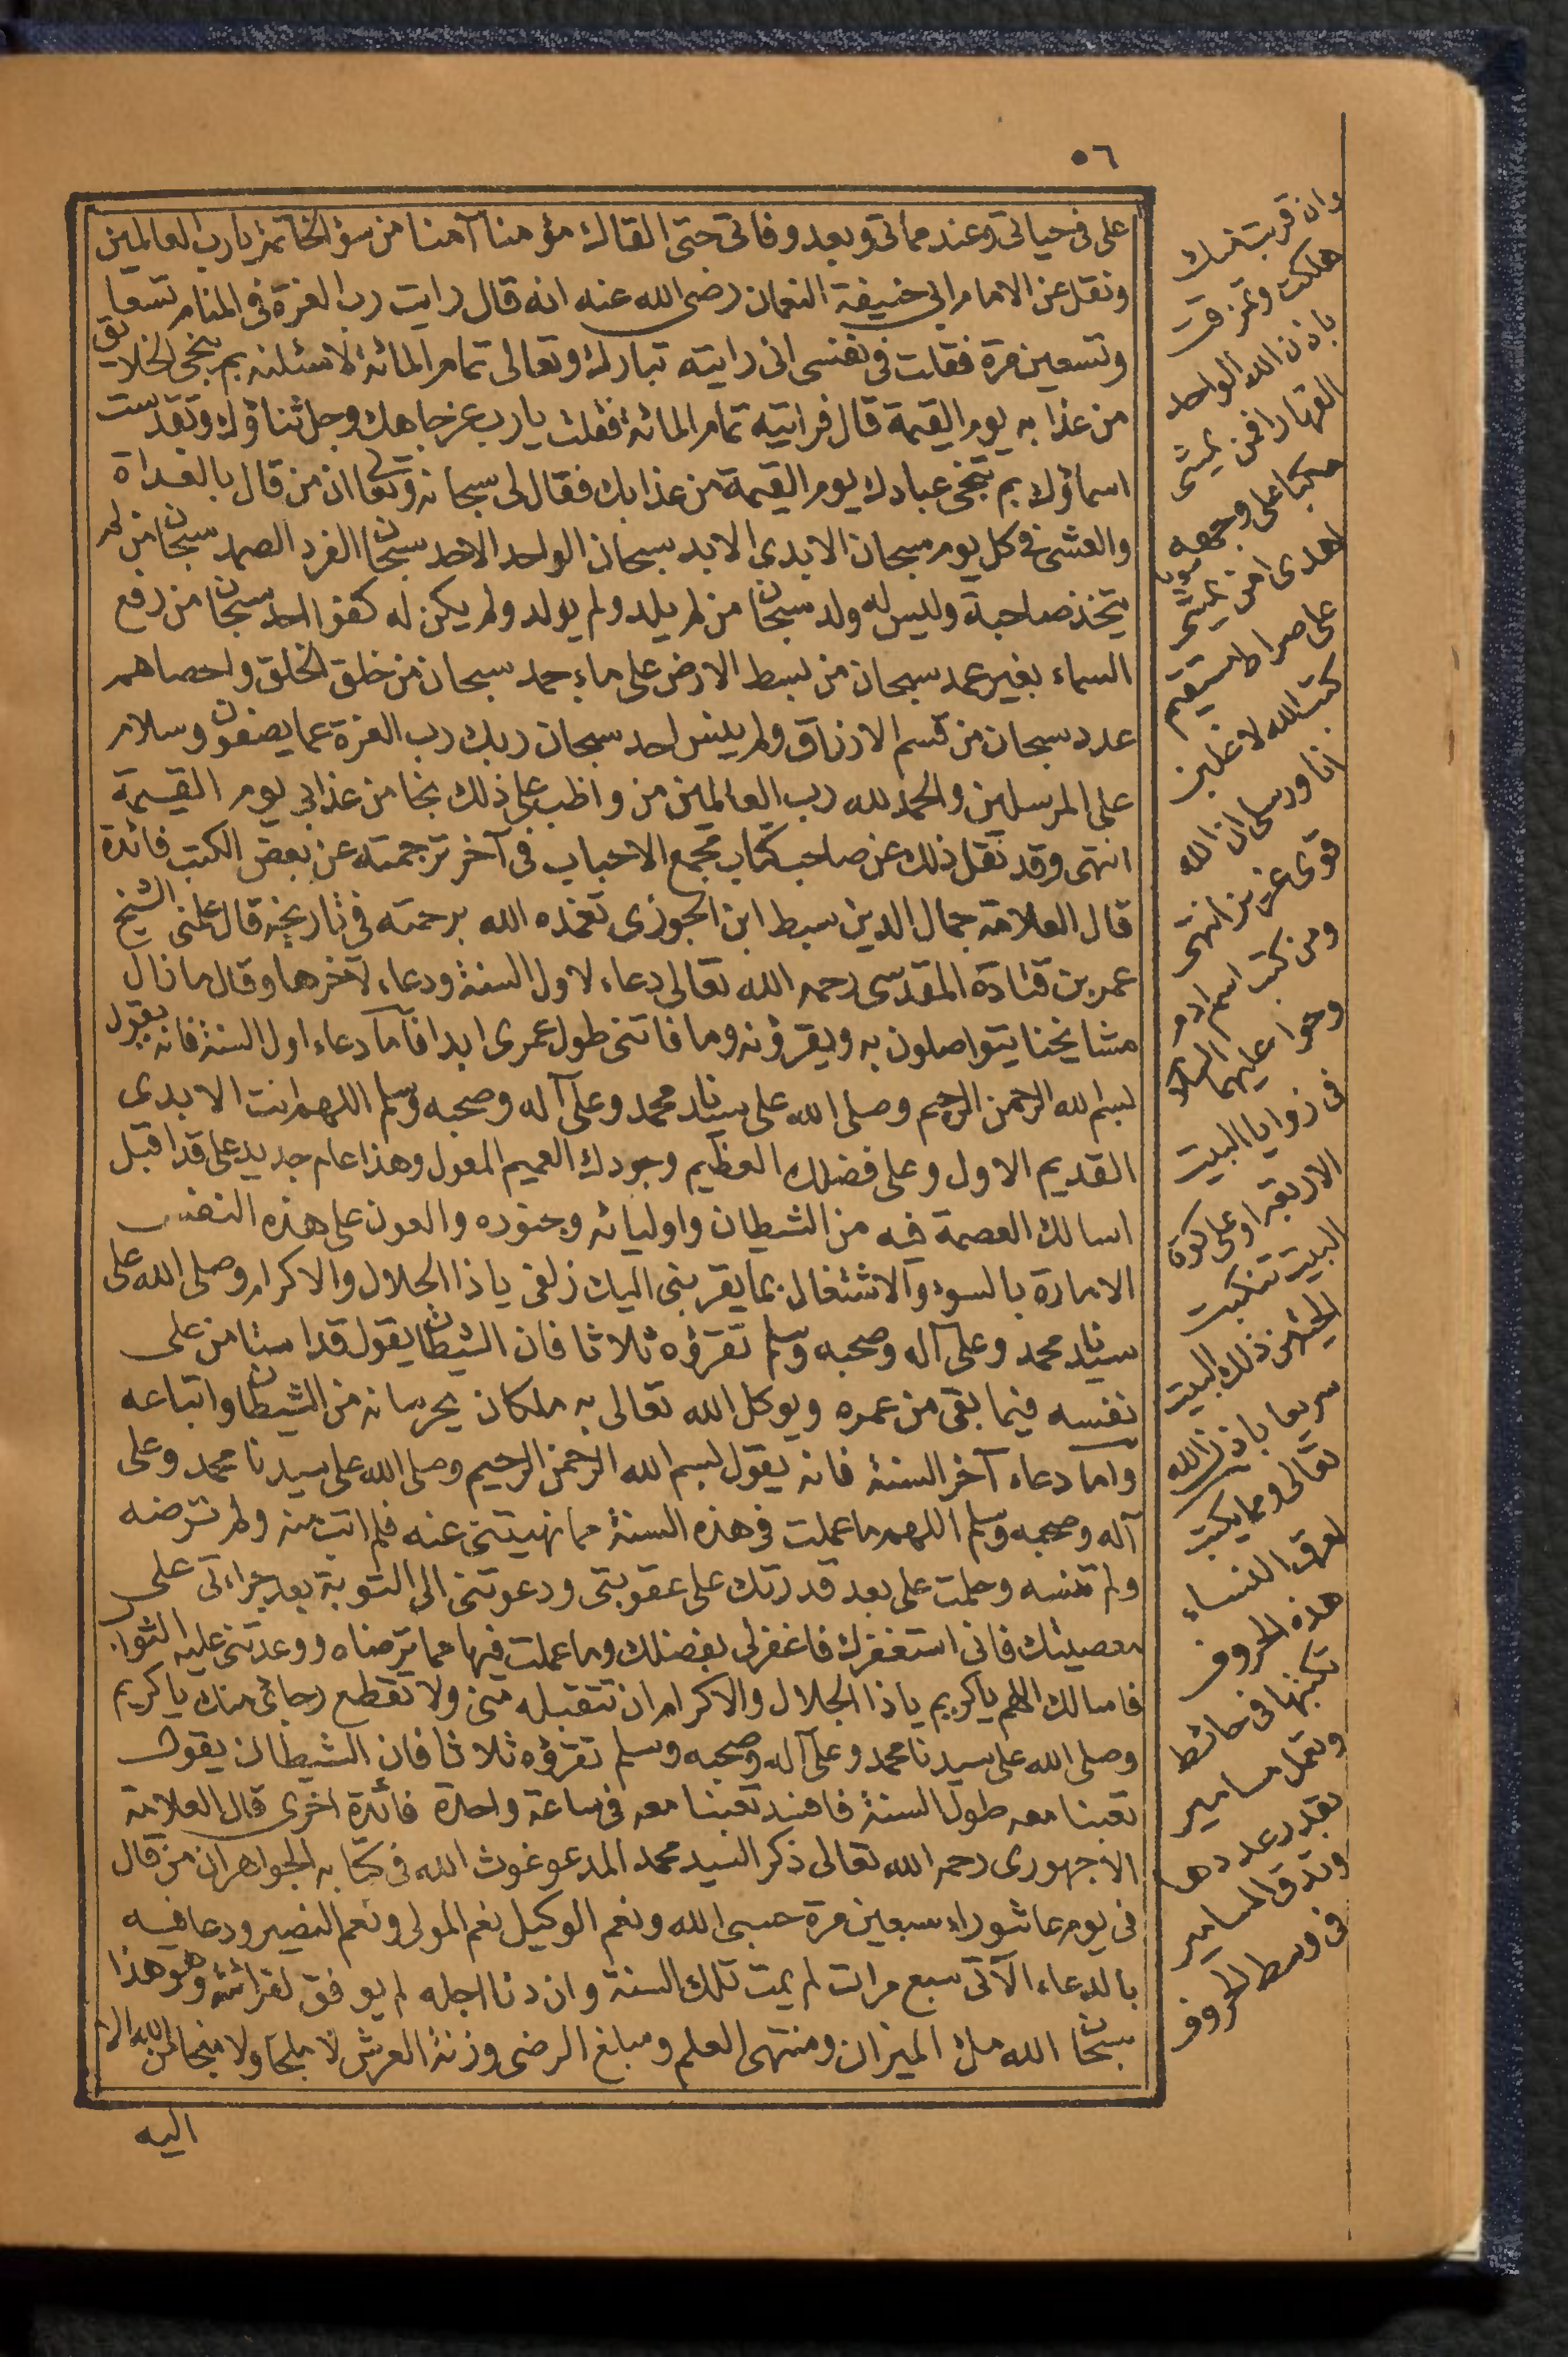 ٥٦
على فى حياتى وعند مماتى وبعد وفاتى حتى القاك مؤمنا آمنا من سؤ الخاتمة يارب العالمين
ونقل عن الامام ابى حنيفة النعمان رضى الله عنه انه قال رايت رب العزة فى المنام تسعا
وتسعين مرة فقلت فى نفسى انى رايته تبارك وتعالى تمام المائة لاسئلنه بم ينجى الخلائق
من عذابه يوم القيمة قال فرايته تمام المائة فقلت يارب عز جاهك وجل ثناؤك وتقدست
اسماؤك بم تنجى عبادك يوم القيمة من عذابك فقال لى سبحانه وتعالى ان من قال بالغداة
والعشى فى كل يوم سبحان الابدى الابد سبحان الواحد الاحد سبحان الفرد الصمد سبحان من لم
يتخذ صاحبة وليس له ولد سبحان من لم يلد ولم يولد ولم يكن له كفوا احد سبحان من رفع
السماء بغير عمد سبحان من بسط الارض على ماء جمد سبحان من خلق الخلق واحصاهم
عدد سبحان من قسم الارزاق ولم ينس احد سبحان ربك رب العزة عما يصفون وسلام
على المرسلين والحمد لله رب العالمين من واظب على ذلك نجا من عذابى يوم القيمة
انتهى وقد نقل ذلك عن صاحب كتاب مجمع الاحباب فى آخر ترجمته عن بعض الكتب فائدة
قال العلامة جمال الدين سبط ابن الجوزى تغمده الله برحمته فى تاريخه قال علمنى الشيخ
عمر بن قتادة المقدسى رحمه الله تعالى دعاء لاول السنة ودعاء لآخرها وقال ما زال
مشايخنا يتواصلون به ويقرؤنه وما فاتنى طول عمرى ابدا فآما دعاء اول السنة فانه يقول
بسم الله الرحمن الرحيم وصلى الله على سيدنا محمد وعلى آله وصحبه وسلم اللهم انت الابدى
القديم الاول وعلى فضلك العظيم وجودك العميم المعول وهذا عام جديد على قد اقبل
اسالك العصمة فيه من الشيطان واوليائه وجنوده والعون على هذه النفس
الامارة بالسوء والاشتغال بما يقربنى اليك زلفى ياذا الجلال والاكرام وصلى الله على
سيدنا محمد وعلى آله وصحبه وسلم تقرؤه ثلاثا فان الشيطان يقول قد استامن على
نفسه فيما بقى من عمره ويوكل الله تعالى به ملكان يحرسانه من الشيطان واتباعه
واما دعاء آخر السنة فانه يقول بسم الله الرحمن الرحيم وصلى الله على سيدنا محمد وعلى
آله وصحبه وسلم اللهم ما عملت فى هذه السنة مما نهيتنى عنه فلم اتب منه ولم ترضه
ولم تنسه وحلمت على بعد قدرتك على عقوبتى ودعوتنى الى التوبة بعد جراءتى على
معصيتك فانى استغفرك فاغفرلى بفضلك وما عملت فيها مما ترضاه ووعدتنى عليه الثواب
فاسالك اللهم ياكريم ياذا الجلال والاكرام ان تتقبله منى ولا تقطع رجائى منك ياكريم
وصلى الله على سيدنا محمد وعلى آله وصحبه وسلم تقرؤه ثلاثا فان الشيطان يقول
تعبنا معه طول السنة فافسد تعبنا معه فى ساعة واحدة فائدة اخرى قال العلامة
الاجهورى رحمه الله تعالى ذكر السيد محمد المدعو غوث الله فى كتابه الجواهر ان من قال
فى يوم عاشوراء سبعين مرة حسبى الله ونعم الوكيل نعم المولى ونعم النصير ودعا فيه
بالدعاء الآتى سبع مرات لم يمت تلك السنة وان دنا اجله لم يوفق لقرائته وهو هذا
سبحان الله ملئ الميزان ومنتهى العلم ومبلغ الرضى وزنة العرش لا ملجا ولا منجا من الله الا
اليه
وان قربت
هلكت وتمزقت
باذن الله الواحد
القهار افمن يمشى
مكبا على وجهه
اهدى امن يمشى سويا
على صراط مستقيم
كتب الله لاغلبن
انا ورسلى ان الله
قوى عزيز انتهى
ومن كتب اسم ادم
وحوا عليهما السلام
فى زوايا البيت
الاربعة او على كوة
البيت
من ذلك البيت
سريعا باذن الله
تعالى ومما يكتب
لعرق النساء
هذه الحروف
تكتبها فى حائط
وتعمل مسامير
بقدر عددها
وتدق المسامير
فى وسط الحروف